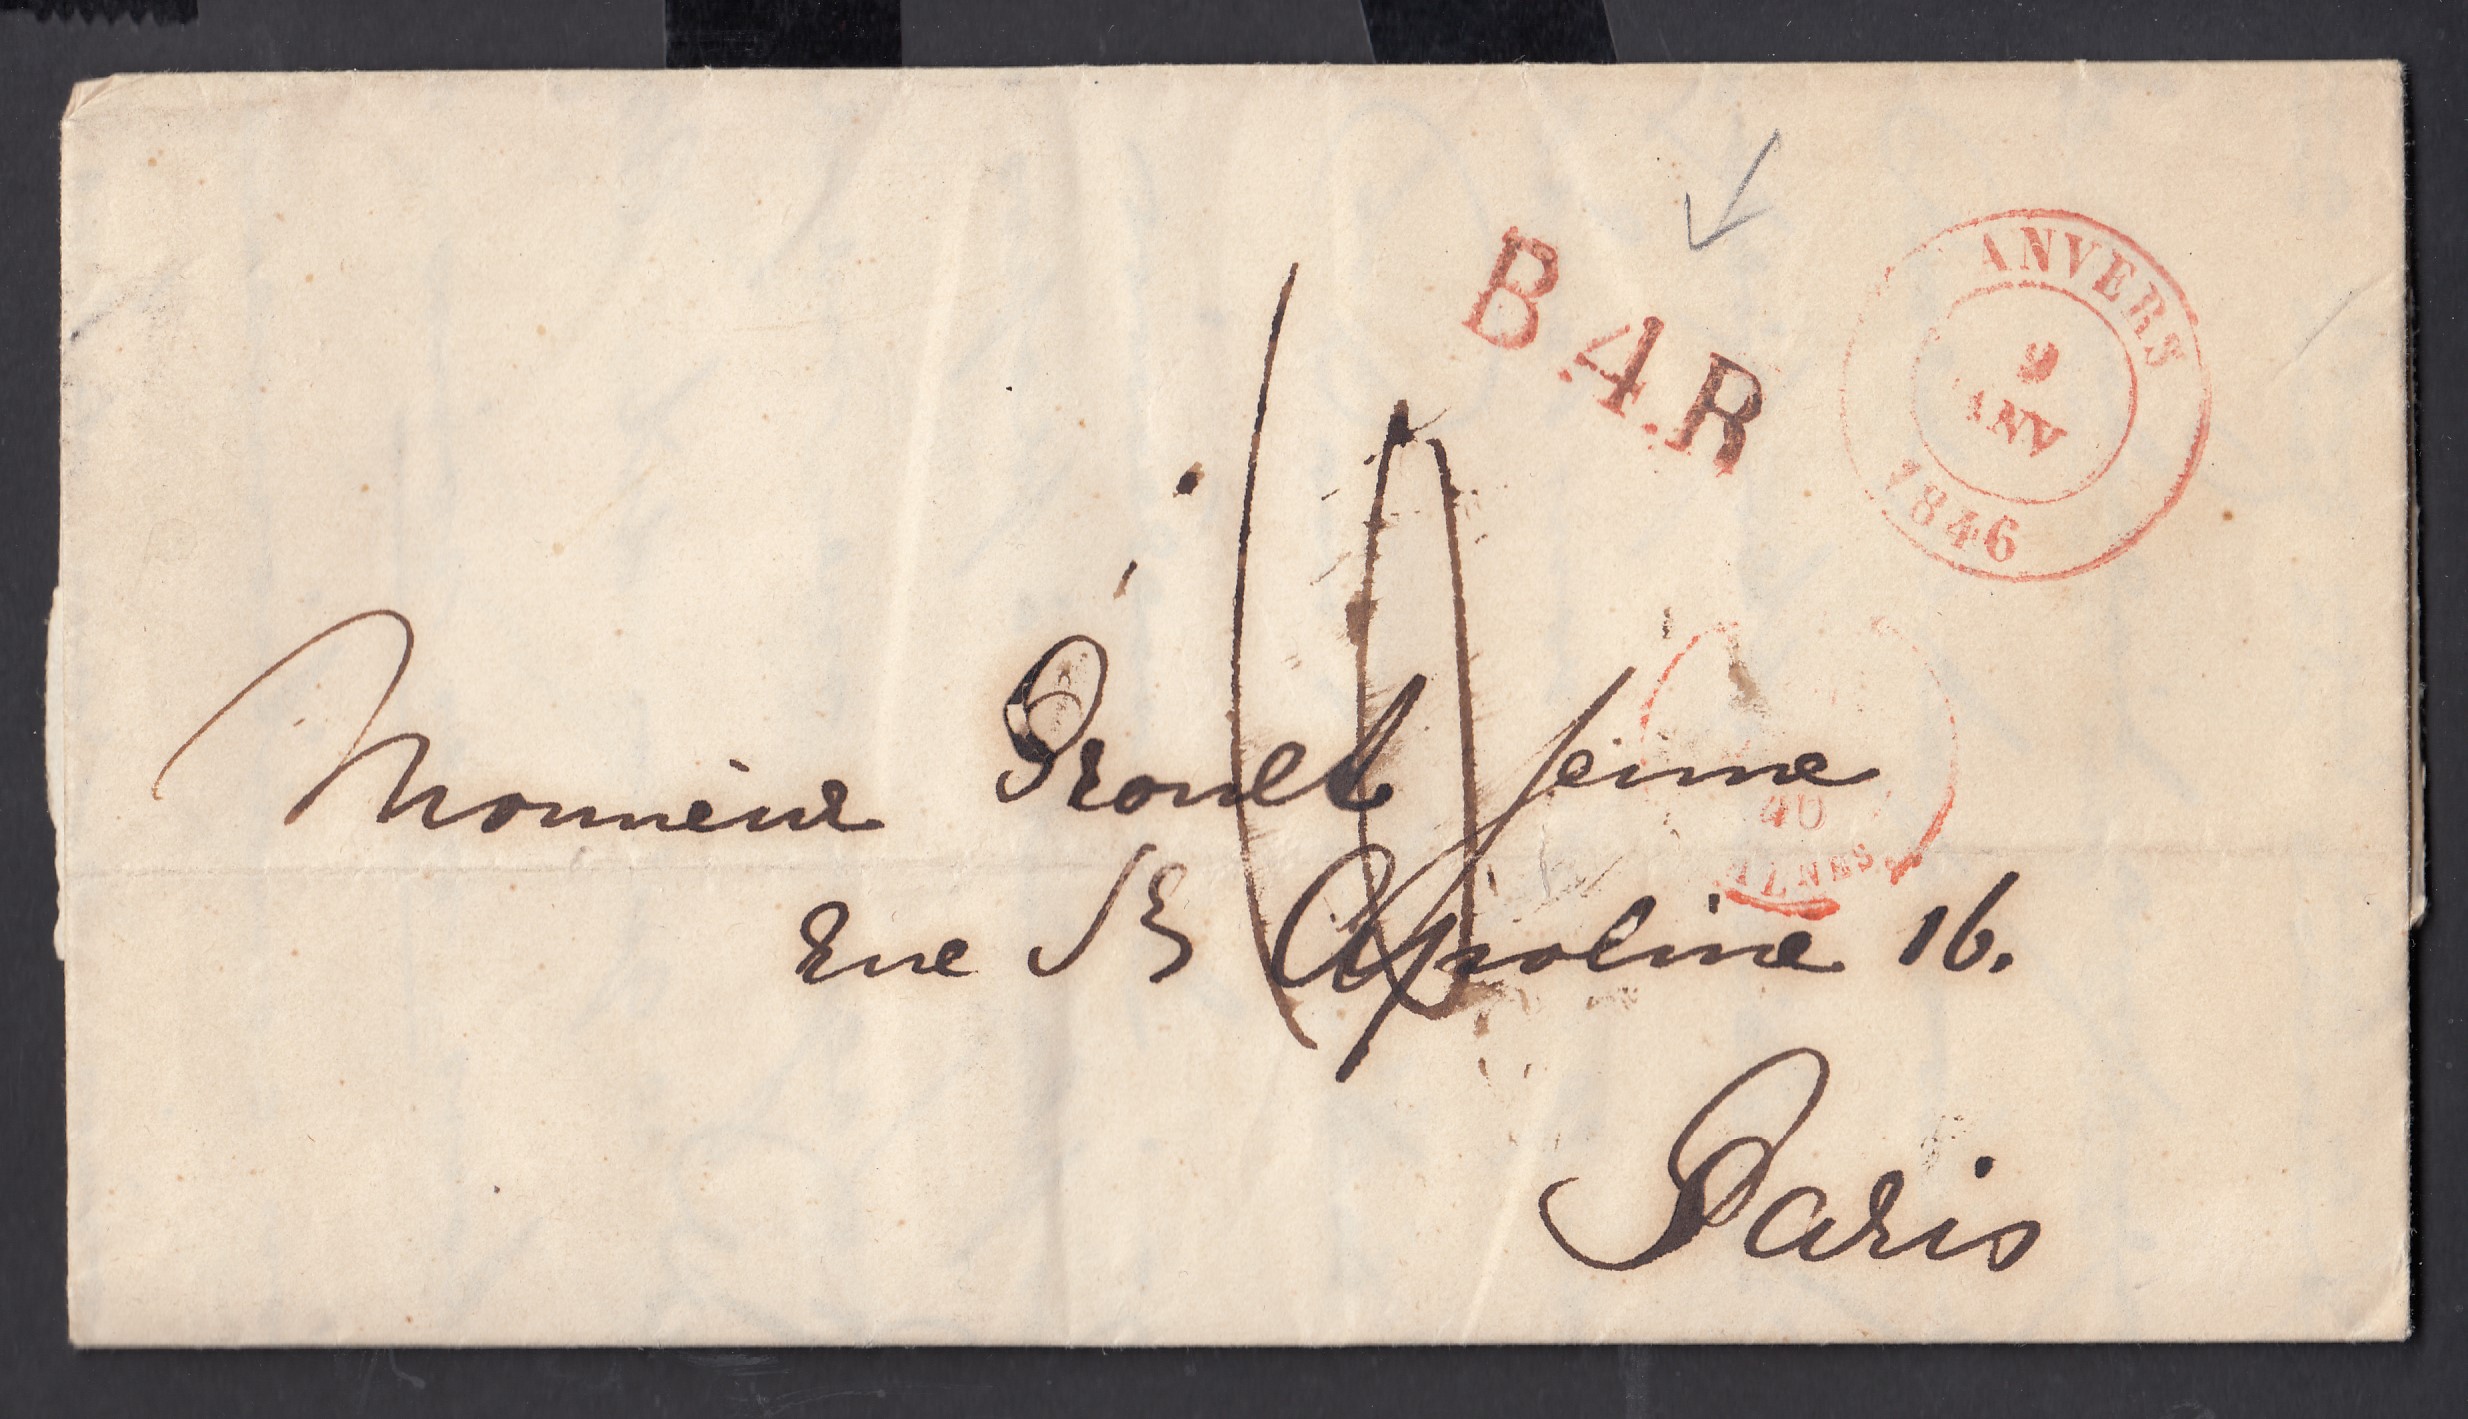 B4R
ANVERS
9
JANV
1846
Monsieur Drouet Jeune
46
rue Ste Apoline 16.
Paris